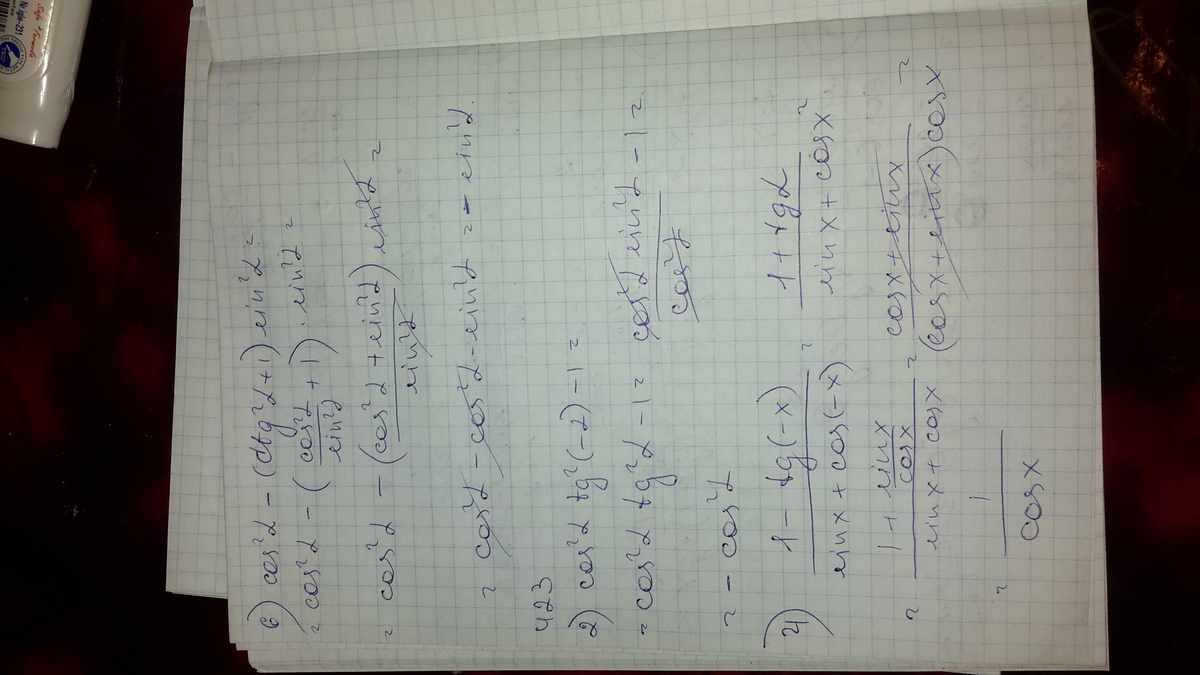 6) cos²α - (ctg²α+1) sin²α =
= cos²α - (cos²α/sin²α + 1) · sin²α =
= cos²α - ((cos²α + sin²α)/sin²α) sin²α =
= cos²α - cos²α - sin²α = - sin²α.
423
2) cos²α tg²(-α) - 1 =
= cos²α tg²α - 1 = (cos²α sin²α)/cos²α - 1 =
= - cos²α
4) (1 - tg(-x))/(sin x + cos(-x)) = (1 + tgα)/(sin x + cos x) =
= (1 + sin x/cos x)/(sin x + cos x) = (cos x + sin x)/((cos x + sin x) cos x) =
= 1/cos x